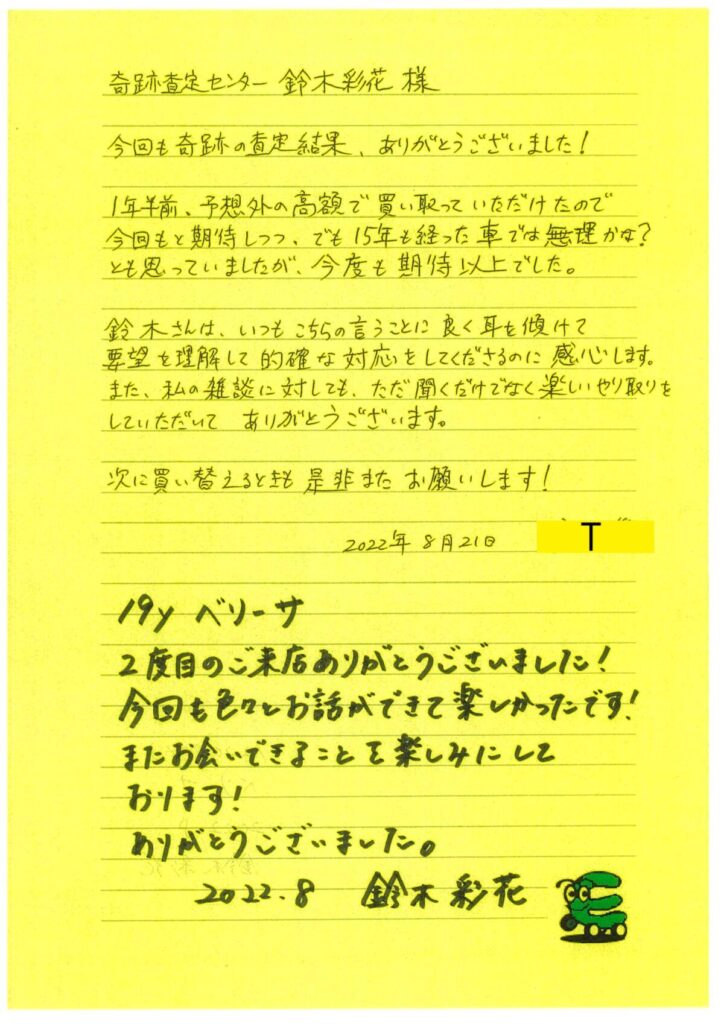 奇跡査定センター 鈴木彩花 様
今回も奇跡の査定結果、ありがとうございました！
1年半前、予想外の高額で買い取っていただけたので
今回もと期待しつつ、でも15年も経った車では無理かな？
とも思っていましたが、今度も期待以上でした。
鈴木さんは、いつもこちらの言うことに良く耳を傾けて
要望を理解して的確な対応をしてくださるのに感心します。
また、私の雑談に対しても、ただ聞くだけでなく楽しいやり取りを
していただいて ありがとうございます。
次に買い替えるときも是非またお願いします！
2022年8月21日 T
19y ベリーサ
2度目のご来店ありがとうございました！
今回も色々とお話ができて楽しかったです！
またお会いできることを楽しみにして
おります！
ありがとうございました。
2022.8 鈴木彩花